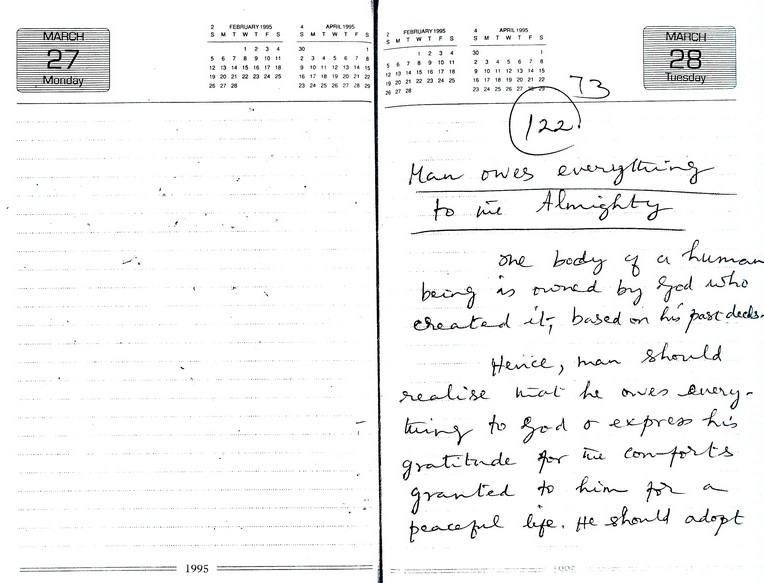 MARCH
27
Monday
2 FEBRUARY 1995
S M T W T F S
1 2 3 4
5 6 7 8 9 10 11
12 13 14 15 16 17 18
19 20 21 22 23 24 25
26 27 28
4 APRIL 1995
S M T W T F S
30 1
2 3 4 5 6 7 8
9 10 11 12 13 14 15
16 17 18 19 20 21 22
23 24 25 26 27 28 29
1995
2 FEBRUARY 1995
S M T W T F S
1 2 3 4
5 6 7 8 9 10 11
12 13 14 15 16 17 18
19 20 21 22 23 24 25
26 27 28
4 APRIL 1995
S M T W T F S
30 1
2 3 4 5 6 7 8
9 10 11 12 13 14 15
16 17 18 19 20 21 22
23 24 25 26 27 28 29
MARCH
28
Tuesday
73
122.
Man owes everything
to the Almighty
The body of a human
being is owned by God who
created it, based on his past deeds.
Hence, man should
realise that he owes every-
thing to God & express his
gratitude for the comforts
granted to him for a
peaceful life. He should adopt
1995